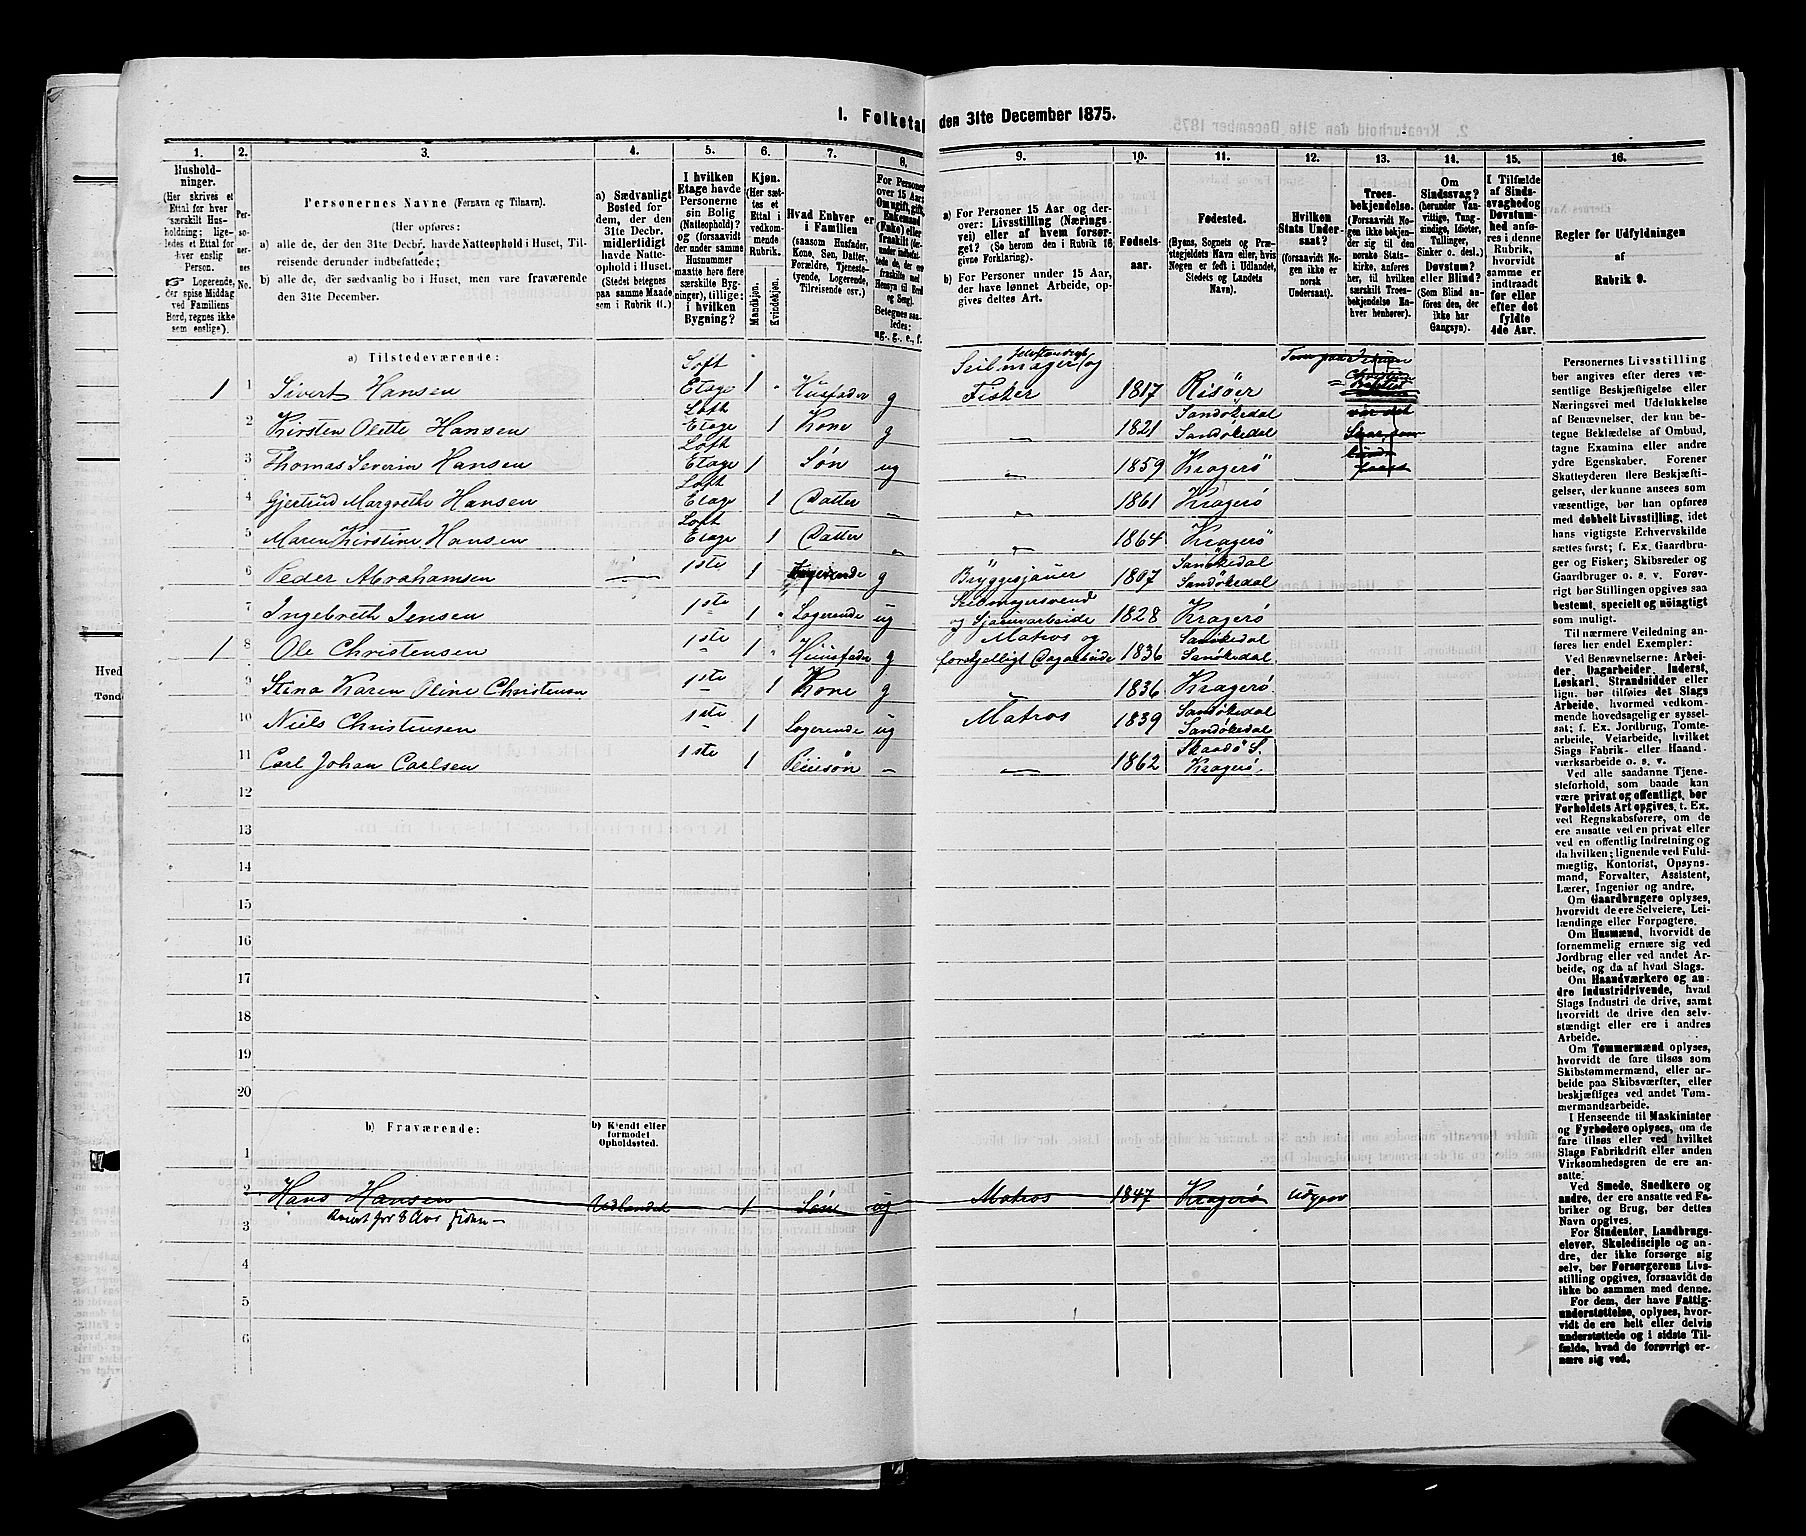 1. Folketal den 31te December 1875.
1. 2. 3. 4. 5. 6. 7. 8. 9. 10. 11. 12. 13. 14. 15. 16.
Husholdninger.
(Her skrives et Ettal for hver særskilt Husholdning; ligeledes et Ettal for hver enslig Person.
Logerende, der spise Middag ved Familiens Bord, regnes ikke som enslige).
Personernes No.
Personernes Navne (Fornavn og Tilnavn).
(Her opføres:
a) alle de, der den 31te Decbr. havde Natteophold i Huset, Tilreisende derunder indbefattede;
b) alle de, der sædvanlig bo i Huset, men vare fraværende den 31te December.
a) Sædvanligt Bosted for dem, der den 31te Decbr. midlertidigt havde Natteophold i Huset. (Stedet betegnes paa samme Maade som i Rubrik 11.)
I hvilken Etage havde Personerne sin Bolig (Natteophold)? og (forsaavidt der under samme Husnummer maatte høre flere særskilte Bygninger), tillige: i hvilken Bygning?
Kjøn.
(Her sættes et Ettal i vedkommende Rubrik.
Mandkjøn. Kvindekjøn.
Hvad Enhver er i Familien
(saasom Husfader, Kone, Søn, Datter, Forældre, Tjenestetyende, Logerende, Tilreisende osv.)
For Personer over 15 Aar: Om ugift, gift, Enkemand (Enke) eller fraskilt
Betegnes saaledes: ug., g., e., f.
a) For Personer 15 Aar og derover: Livsstilling (Næringsvei) eller af hvem forsørget? (Se herom den i Rubrik 16 givne Forklaring).
b) For Personer under 15 Aar, der have lønnet Arbeide, opgives dettes Art.
Fødselsaar.
Fødested.
(Byens, Sognets og Præstegjeldets Navn eller, hvis Nogen er født i Udlandet, Stedets og Landets Navn).
Hvilken Stats Undersaat?
(forsaavidt Nogen ikke er norsk Undersaat).
Troesbekjendelse.
(Forsaavidt Nogen ikke bekjender sig til den norske Statskirke, anføres her, til hvilken særskilt Troesbekjendelse Enhver henhører).
Om Sindssvag? (herunder Vanvittige, Tungsindige, Idioter, Tullinger, Sinker o. desl.) Døvstum? eller Blind? (Som Blind anføres den, der ikke har Gangsyn).
I Tilfælde af Sindssvaghed og Døvstumhed anføres i denne Rubrik, hvorvidt samme er indtraadt før eller efter det fyldte 4de Aar.
Regler for Udfyldningen
af
Rubrik 9.
a) Tilstedeværende:
1 1 Sivert Hansen Loft Etage 1 Husfader g Seilmager selvstændigt og Fisker 1817 Risöer
2 Kirsten Olette Hansen Loft Etage 1 Kone g 〃 1821 Sandökedal Sandökedal
3 Thomas Severin Hansen Loft Etage 1 Søn ug 〃 1859 Kragerö
4 Gjertrud Margrethe Hansen Loft Etage 1 Datter 〃 〃 1861 Kragerö
5 Maren Kirstine Hansen Loft Etage 1 Datter 〃 〃 1864 Kragerö
6 Peder Abrahamsen — 1ste 1 Logerende g Bryggesjauer 1807 Sandökedal Sandökedal
7 Ingebreth Jensen 1ste 1 Logerende ug Seilmagersvend og Sjauerarbeide 1828 Kragerö
1 8 Ole Christensen 1ste 1 Huusfader g Matros og forskjelligt Dagarbeide 1836 Sandökedal Sandökedal
9 Stina Karen Oline Christensen 1ste 1 Kone g 1836 Kragerö
10 Niels Christensen 1ste 1 Logerende ug Matros 1839 Sandökedal Sandökedal
11 Carl Johan Carlsen 1ste 1 Pleiesøn – — 1862 Skaadö S. Kragerö
12
13
14
15
16
17
18
19
20
b) Fraværende: b) Kjendt eller formodet Opholdssted.
1
2 Hans Hansen Udlandet 1 Søn ug Matros 1847 Kragerö
Reist for 8 Aar siden –
3
4
5
6
Personernes Livsstilling
bør angives efter deres væ-
sentlige Beskjæftigelse eller
Næringsvei med Udelukkelse
af Benævnelser, der kun be-
tegne Beklædelse af Ombud,
tagne Examina eller andre
ydre Egenskaber. Forener
Skatteyderen flere Beskjæfti-
gelser, der kunne ansees som
væsentlige, bør han opføres
med dobbelt Livsstilling, idet
hans vigtigste Erhvervskilde
sættes først; f. Ex. Gaardbru-
ger og Fisker; Skibsreder og
Gaardbruger o. s. v. Forøv-
rigt bør Stillingen opgives saa
bestemt, specielt og nøiagtigt
som muligt.
Til nærmere Veiledning an-
føres her endel Exempler:
Ved Benævnelserne: Arbei-
der, Dagarbeider, Inderst,
Løskarl, Strandsidder eller
lign. bør tilføies det Slags
Arbeide, hvormed vedkom-
mende hovedsagelig er syssel-
sat; f. Ex. Jordbrug, Tomte-
arbeide, Veiarbeide, hvilket
Slags Fabrik- eller Haand-
værksarbeide o. s. v.
Ved alle saadanne Tjene-
steforhold, som baade kan
være privat og offentligt, bør
Forholdets Art opgives, t. Ex.
ved Regnskabsførere, om de
ere ansatte ved en privat eller
ved en offentlig Indretning og
da hvilken; lignende ved Fuld-
mægtig, Kontorist, Opsyns-
mand, Forvalter, Assistent,
Lærer, Ingeniør og andre.
Om Gaardbrugere oplyses,
hvorvidt de ere Selveiere, Lei-
lændinge eller Forpagtere.
Om Husmænd, hvorvidt de
fornemmelig ernære sig ved
Jordbrug eller ved andet Ar-
beide, og da af hvad Slags.
Om Haandværkere og an-
dre Industridrivende, hvad
Slags Industri de drive, samt
hvorvidt de drive den selv-
stændigt eller ere i andres
Arbeide.
Om Tømmermænd oplyses,
hvorvidt de fare tilsøs som
Skibstømmermænd, eller ar-
beide paa Skibsværfter, eller
beskjæftiges ved andet Tøm-
mermandsarbeide.
I Henseende til Maskinister
og Fyrbødere oplyses, om de
fare tilsøs eller ved hvilket
Slags Fabrikdrift eller anden
Virksomhedsgren de ere an-
satte.
Ved Smede, Snedkere og
andre, der ere ansatte ved Fa-
briker og Brug, bør dettes
Navn opgives.
For Studenter, Landbrugs-
elever, Skoledisciple og an-
dre, der ikke forsørge sig
selv, bør Forsørgerens Livs-
stilling opgives, forsaavidt de
ikke bo sammen med denne.
For dem, der have Fattig-
understøttelse, oplyses, hvor-
vidt de ere helt eller delvis
understøttede og i sidste Til-
fælde, hvad de forøvrigt er-
nære sig ved.